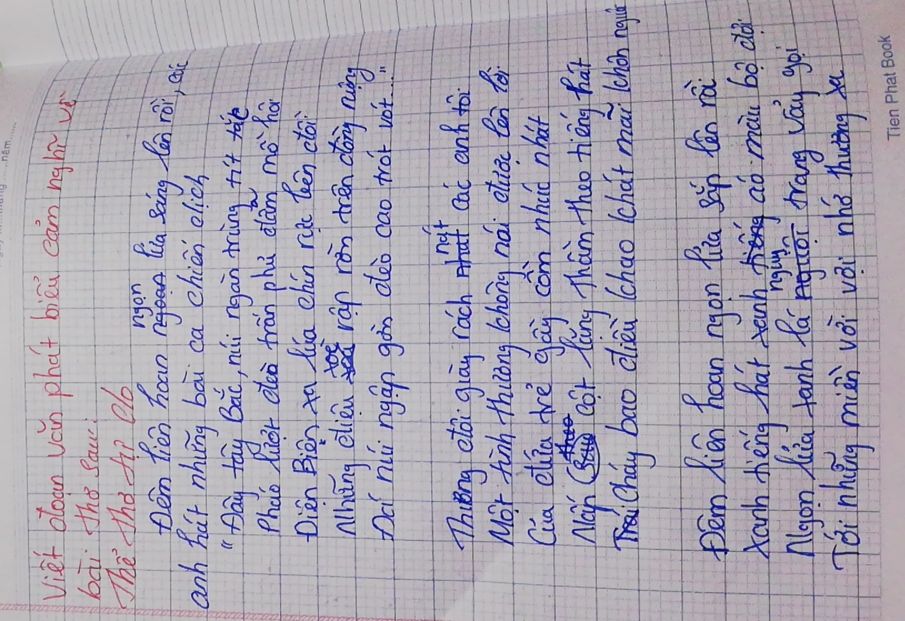 Viết đoạn văn phát biểu cảm nghĩ về
bài thơ sau:
Thể thơ tự do
Đêm liên hoan ngọn lửa sáng lên rồi, các
anh hát những bài ca chiến dịch
"Đây tây Bắc, núi ngàn trùng tít tắp
Pháo lượt đèo trán phủ đẫm mồ hôi
Điện Biên xa lúa chín rực bên đồi
Những điệu xoè rập rờn trên đồng ruộng
Dốc núi ngập gần đèo cao trót vót..."
Thương đôi giày rách nát các anh tôi
Một tình thương không nói được lên lời
Của đứa trẻ gầy còm nhút nhát
Nấp cột lũng thầm theo tiếng hát
Cháy bao điều khao khát mãi khôn nguôi
Đêm liên hoan ngọn lửa sắp lên rồi
Xanh tiếng hát xanh áo màu bộ đội
Ngọn lửa xanh lá nguỵ trang vẫy gọi
Tới những miền vời vợi nhớ thương xa
Tien Phat Book
năm